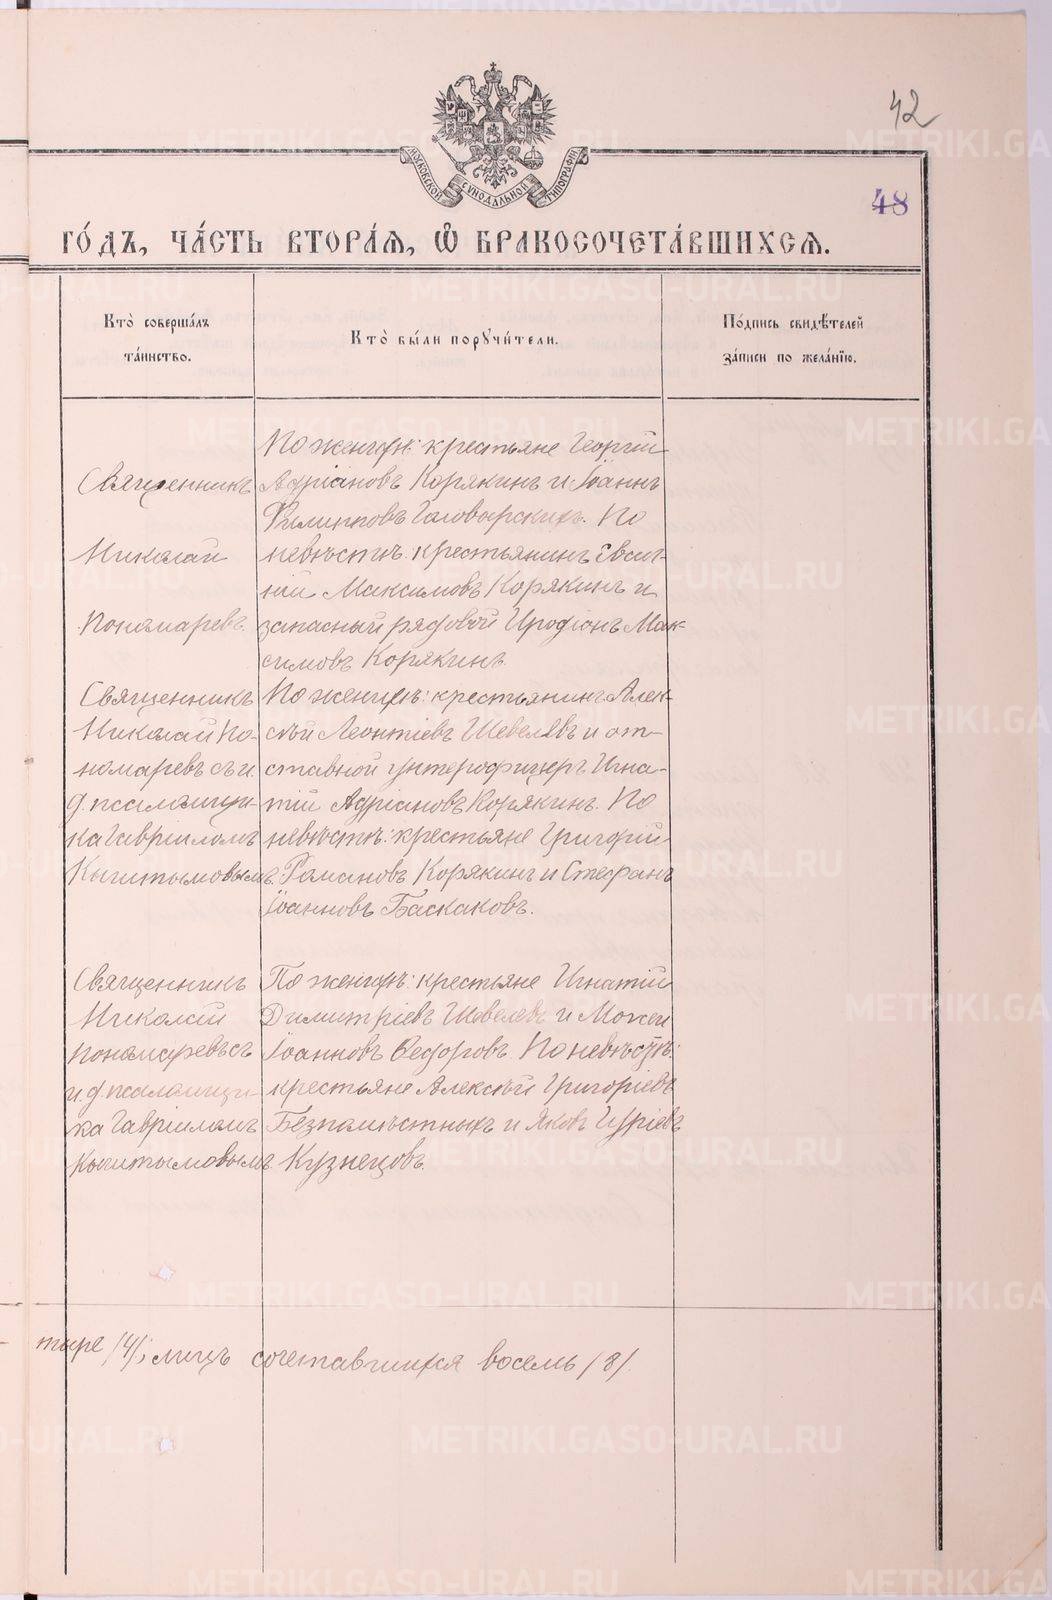 42
МОСКОВСКОЙ СѴНОДАЛЬНОЙ ТИПОГРАФІИ
48
ГО́ДЪ, ЧА́СТЬ ВТОРА́Я, Ѡ҆ БРАКОСОЧЕТА́ВШИХСЯ.
Кто̀ соверша́лъ
та́инство.
Кто̀ бы́ли поручи́тели.
По́дпись свидѣ́телей
за́писи по жела́нїю.
По женихѣ: крестьяне Георгій
Священникъ
Адріановъ Корякинъ и Іоаннъ
Филипповъ Говарскихъ. По
Николай
невѣстѣ: крестьянинъ Евсиг-
ній Максимовъ Корякинъ и
Пономаревъ.
запасный рядовой Иродіонъ Мак-
симовъ Корякинъ.
Священникъ
Николай По-
номаревъ съ и.
д. псаломщи-
ка Гавріиломъ
Кыштымовымъ.
По женихѣ: крестьянинъ Алек-
сѣй Леонтіевъ Шевелевъ и от-
ставной унтерофицеръ Игна-
тій Адріановъ Корякинъ. По
невѣстѣ: крестьяне Григорій
Романовъ Корякинъ и Стефанъ
Іоанновъ Баскаковъ.
Священникъ
Николай
Пономаревъ съ
и. д. псаломщи-
ка Гавріиломъ
Кыштымовымъ
По женихѣ: крестьяне Игнатій
Димитріевъ Шевелевъ и Моисей
Іоанновъ Ѳедоровъ. По невѣстѣ:
крестьяне Алексѣй Григоріевъ
Безпамѣстныхъ и Яковъ Гуріевъ
Кузнецовъ.
тыре /4/; лицъ сочетавшихся восемь /8/.
METRIKI.GASO-URAL.RU